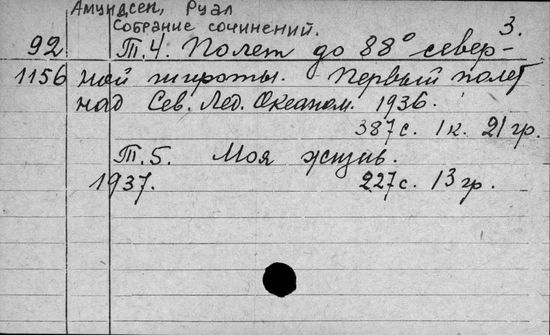 Амундсен, Руал
Собрание сочинений. 3.
92 Т.4. Полет до 88° север-
1156 ной широты. Первый полет
над Сев. Лед. Океаном. 1936.
387с. 1к. 21гр.
Т.5. Моя жизнь.
1937. 227с. 13гр.